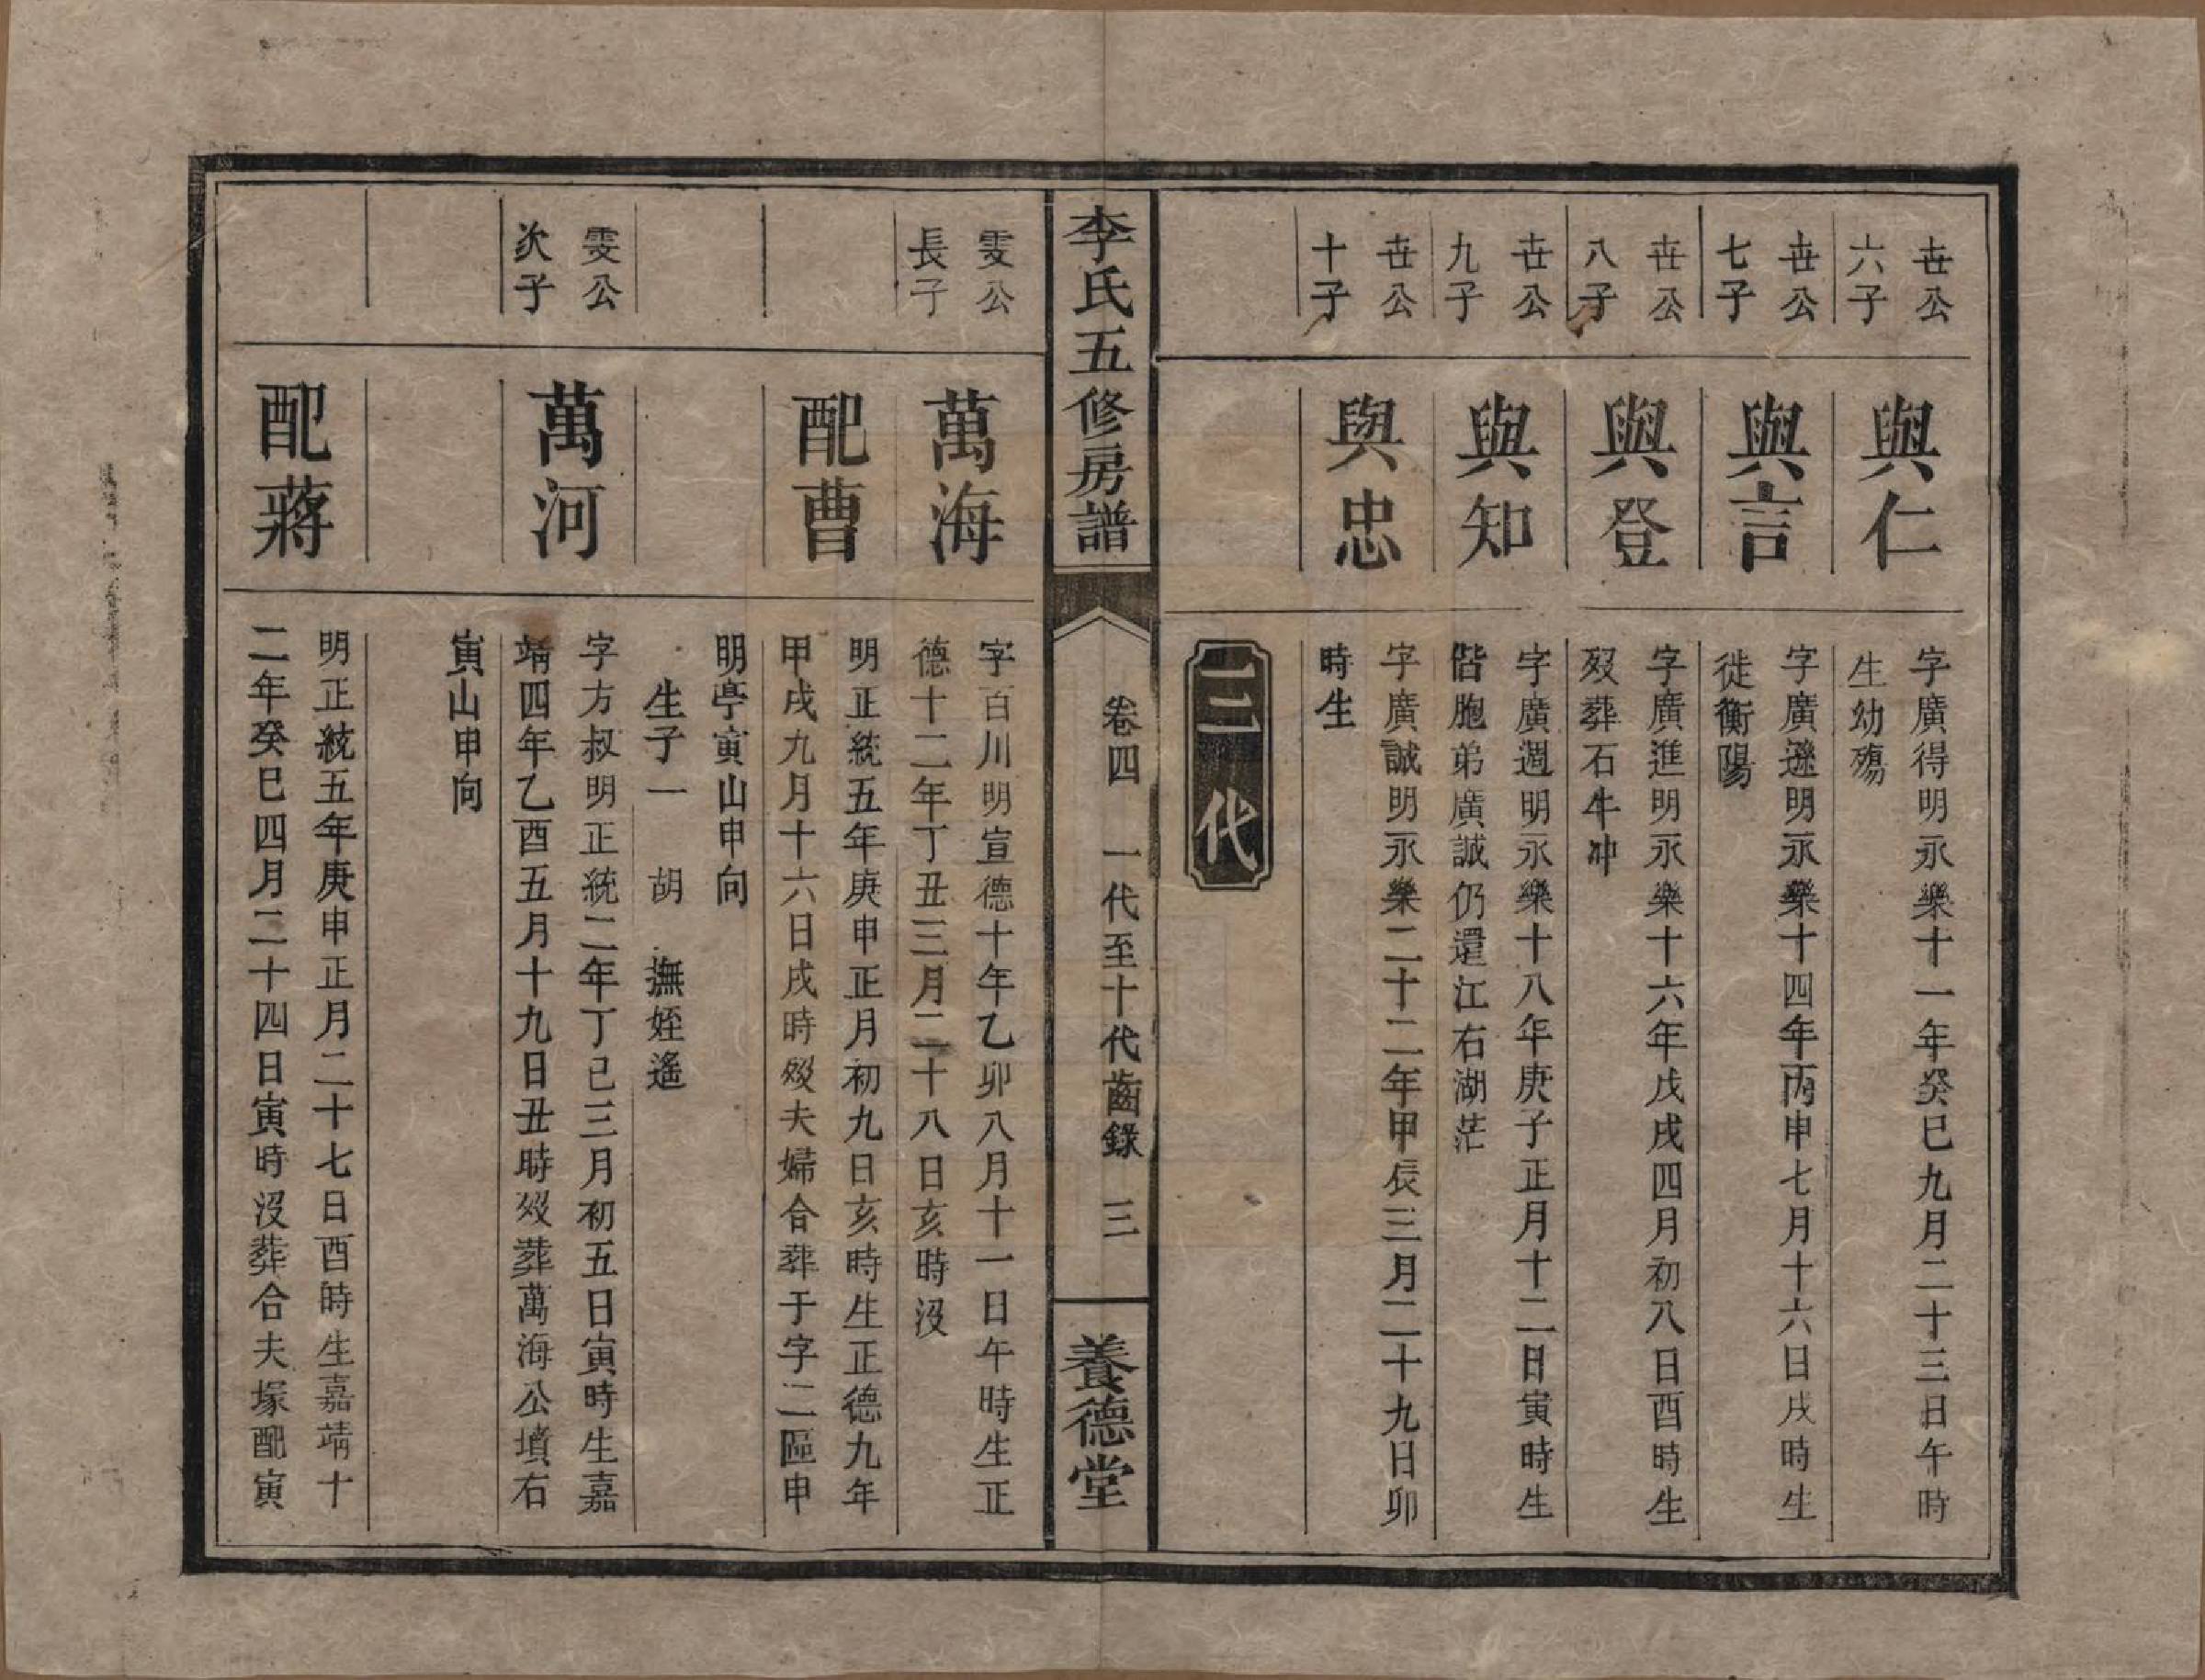 世公
六子
與仁
字廣得明永樂十一年癸巳九月二十三日午時
生幼殤
世公
七子
與言
字廣遜明永樂十四年丙申七月十六日戌時生
徙衡陽
世公
八子
與登
字廣進明永樂十六年戊戌四月初八日酉時生
歿葬石牛冲
世公
九子
與知
字廣週明永樂十八年庚子正月十二日寅時生
偕胞弟廣誠仍還江右湖茫
世公
十子
與忠
字廣誠明永樂二十二年甲辰三月二十九日卯
時生
三代
李氏五修房譜
卷四 一代至十代齒錄 三
養德堂
雯公
長子
萬海
字百川明宣德十年乙卯八月十一日午時生正
德十二年丁丑三月二十八日亥時沒
配曹
明正統五年庚申正月初九日亥時生正德九年
甲戌九月十六日戌時歿夫婦合葬于字二區申
明亭寅山申向
生子一 胡 撫姪遙
雯公
次子
萬河
字方叔明正統二年丁巳三月初五日寅時生嘉
靖四年乙酉五月十九日丑時歿葬萬海公墳右
寅山申向
配蔣
明正統五年庚申正月二十七日酉時生嘉靖十
二年癸巳四月二十四日寅時沒葬合夫塚配寅